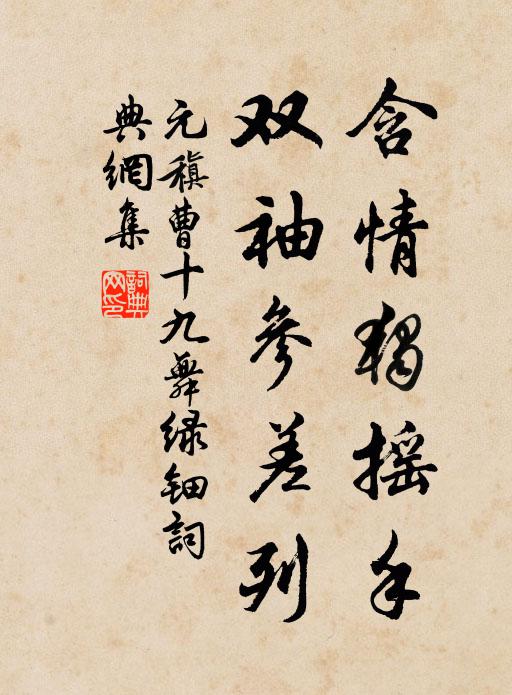 含情独摇手
双袖参差列
元稹曹十九舞绿钿詞
典網集
詞典网印